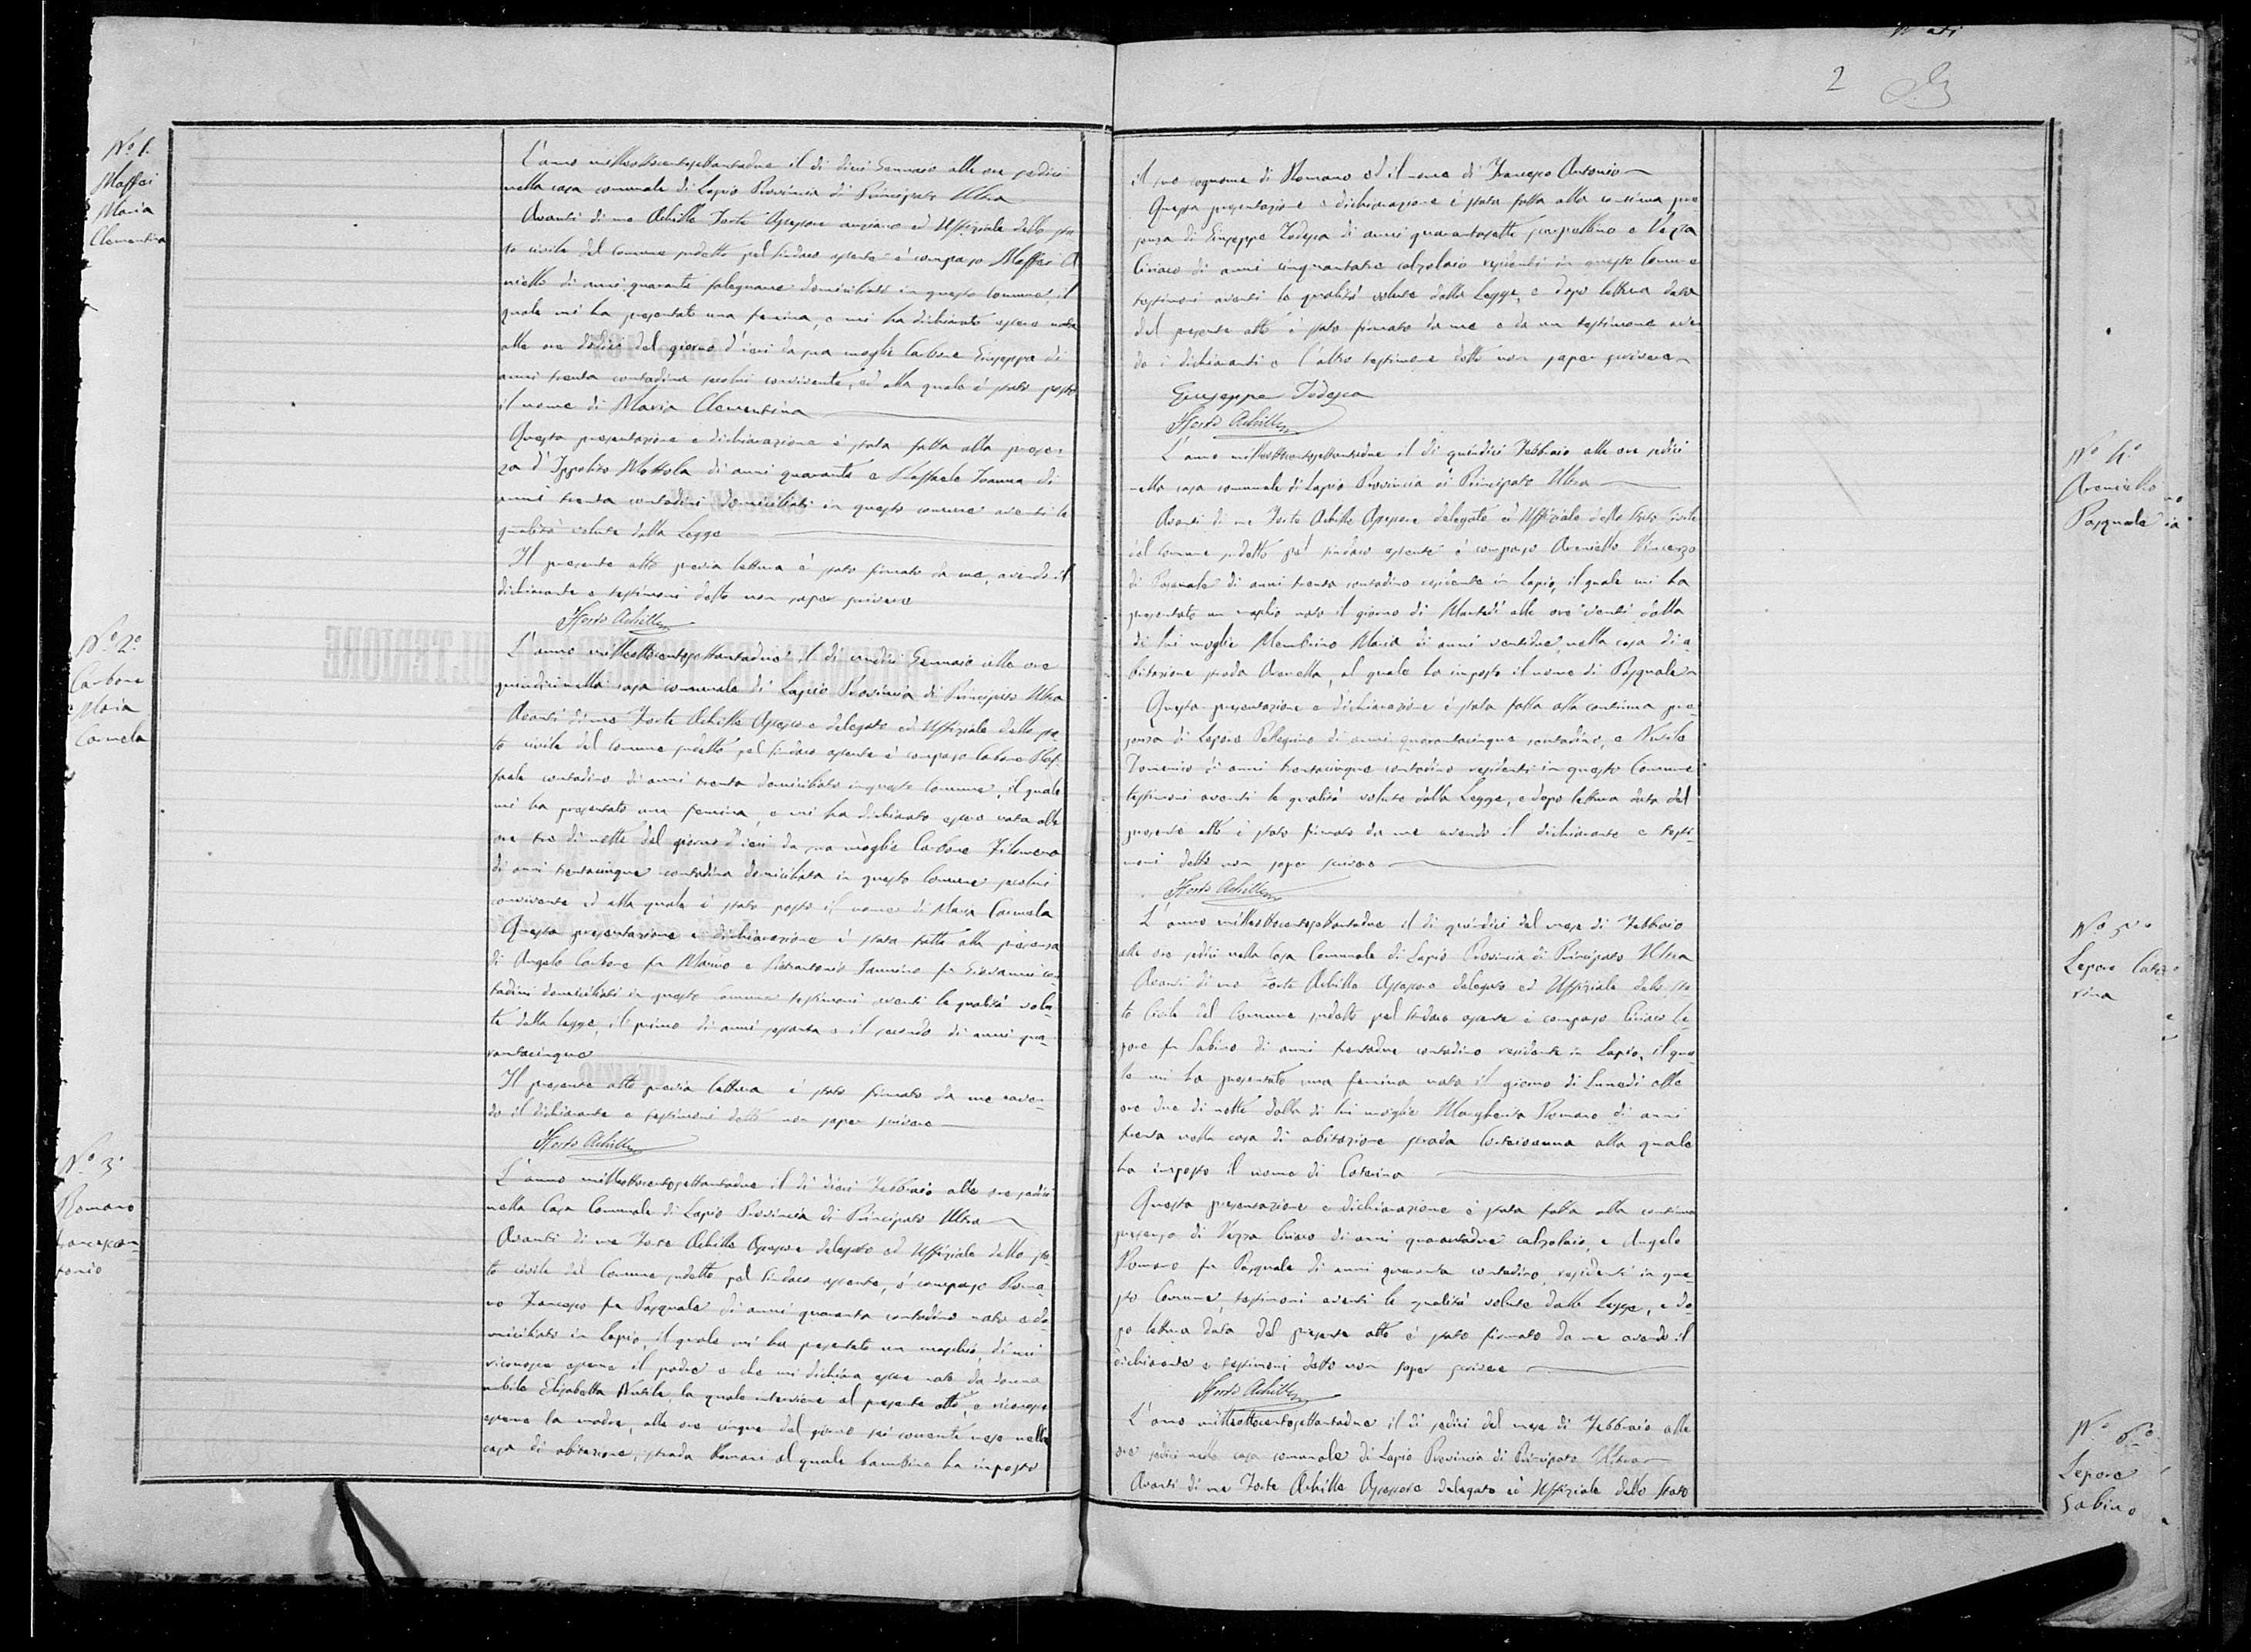 Nati
2
N.o 1.
Maffei
Maria
Clementina
L'anno milleottocentosettantadue il dì dieci Gennaio alle ore sedici
nella casa comunale di Lapio Provincia di Principato Ultra
Avanti di me Achille Forte Assessore anziano ed Uffiziale dello sta-
to civile del comune sudetto pel sindaco assente è comparso Maffei A
niello di anni quaranta falegname domiciliato in questo comune, il
quale mi ha presentato una femina, e mi ha dichiarato essere nata
alle ore dodici del giorno d'ieri da sua moglie Carbone Giuseppa di
anni trenta contadina secolui convivente, ed alla quale è stato posto
il nome di Maria Clementina
Questa presentazione e dichiarazione è stata fatta alla presen-
za d'Ippolito Mottola di anni quaranta e Raffaele Ioanna di
anni trenta contadini domiciliati in questo comune aventi le
qualità volute dalla Legge
Il presente atto previa lettura è stato firmato da me, avendo il
dichiarante e testimoni detto non saper scrivere
Forte Achille
N.o 2.o
Carbone
Maria
Carmela
L'anno milleottocentosettantadue il dì Gennaio alle ore
quindici nella casa comunale di Lapio Provincia di Principato Ultra
Avanti di me Forte Achille Assessore delegato ed Uffiziale dello sta-
to civile del comune sudetto pel sindaco assente è comparso Carbone Raf-
faele contadino di anni trenta domiciliato in questo Comune, il quale
mi ha presentato una femina, e mi ha dichiarato essere nata alle
ore tre di notte del giorno d'ieri da sua moglie Carbone Filomena
di anni trentacinque contadina domiciliata in questo Comune secolui
convivente ed alla quale è stato posto il nome di Maria Carmela
Questa presentazione e dichiarazione è stata fatta alla presenza
di Angelo Carbone fu Marino e Pietrantonio Iannino fu Giovanni con-
tadini domiciliati in questo Comune testimoni aventi le qualità volu-
te dalla legge, il primo di anni sessanta e il secondo di anni qua-
rantacinque
Il presente atto previa lettura è stato firmato da me aven-
do il dichiarante e testimoni detto non saper scrivere
Forte Achille
N.o 3.o
Romano
Francescoan-
tonio
L'anno milleottocentosettantadue il dì dieci Febbraio alle ore sedici
nella Casa Comunale di Lapio Provincia di Principato Ultra
Avanti di me Forte Achille Assessore delegato ed Uffiziale dello sta-
to civile del Comune sudetto pel Sindaco assente, è comparso Roma-
no Francesco fu Pasquale di anni quaranta contadino nato e do-
miciliato in Lapio, il quale mi ha presentato un maschio, di cui
riconosce esserne il padre e che mi dichiara essere nato da donna
nubile Elisabetta Nutile, la quale interviene al presente atto, e riconosce
esserne la madre, alle ore cinque del giorno sei corrente mese nella
casa di abitazione, strada Romani al quale bambino ha imposto
il suo cognome di Romano ed il nome di Francesco Antonio
Questa presentazione e dichiarazione è stata fatta alla continua pre-
senza di Giuseppe Todesca di anni quarantasette e Vezza
Ciriaco di anni cinquantatre calzolaio residenti in questo Comune
testimoni aventi le qualità volute dalla Legge, e dopo lettura data
del presente atto è stato firmato da me e da un testimone aven-
do i dichiaranti e l'altro testimone detto non saper scrivere
Giuseppe Todesca
Forte Achille
N.o 4.o
Areniello
Pasquale
L'anno milleottocentosettantadue il dì quindici Febbraio alle ore sedici
nella casa comunale di Lapio Provincia di Principato Ultra
Avanti di me Forte Achille Assessore delegato ed Uffiziale dello Stato Civile
del Comune sudetto pel sindaco assente è comparso Areniello Vincenzo
di Pasquale di anni trenta contadino residente in Lapio, il quale mi ha
presentato un maschio nato il giorno di Martedì alle ore venti dalla
di lui moglie Membrino Maria di anni ventidue, nella casa di a-
bitazione strada Arenella, al quale ha imposto il nome di Pasquale
Questa presentazione e dichiarazione è stata fatta alla continua pre-
senza di Lepore Pellegrino di anni quarantacinque contadino, e Nutile
Domenico di anni trentacinque contadino residenti in questo Comune
testimoni aventi le qualità volute dalla Legge, e dopo lettura data del
presente atto è stato firmato da me avendo il dichiarante e testi-
moni detto non saper scrivere
Forte Achille
N.o 5.o
Lepore Cate-
rina
L'anno milleottocentosettantadue il dì quindici del mese di Febbraio
alle ore sedici nella Casa Comunale di Lapio Provincia di Principato Ultra
Avanti di me Forte Achille Assessore delegato ed Uffiziale dello sta-
to Civile del Comune sudetto pel Sindaco assente è comparso Ciriaco Le-
pore fu Sabino di anni trentadue contadino residente in Lapio, il qua-
le mi ha presentato una femina nata il giorno di Lunedì alle
ore due di notte dalla di lui moglie Margherita Romano di anni
trenta nella casa di abitazione strada alla quale
ha imposto il nome di Caterina
Questa presentazione e dichiarazione è stata fatta alla continua
presenza di Vezza Ciriaco di anni quarantadue calzolaio, e Angelo
Romano fu Pasquale di anni quaranta contadino, residenti in que-
sto Comune, testimoni aventi le qualità volute dalle Legge, e do-
po lettura data del presente atto è stato firmato da me avendo il
dichiarante e testimoni detto non saper scrivere
Forte Achille
N.o 6.o
Lepore
Sabino
L'anno milleottocentosettantadue il dì sedici del mese di Febbraio alle
ore sedici nella casa comunale di Lapio Provincia di Principato Ultra
Avanti di me Forte Achille Assessore delegato ed Uffiziale dello Stato